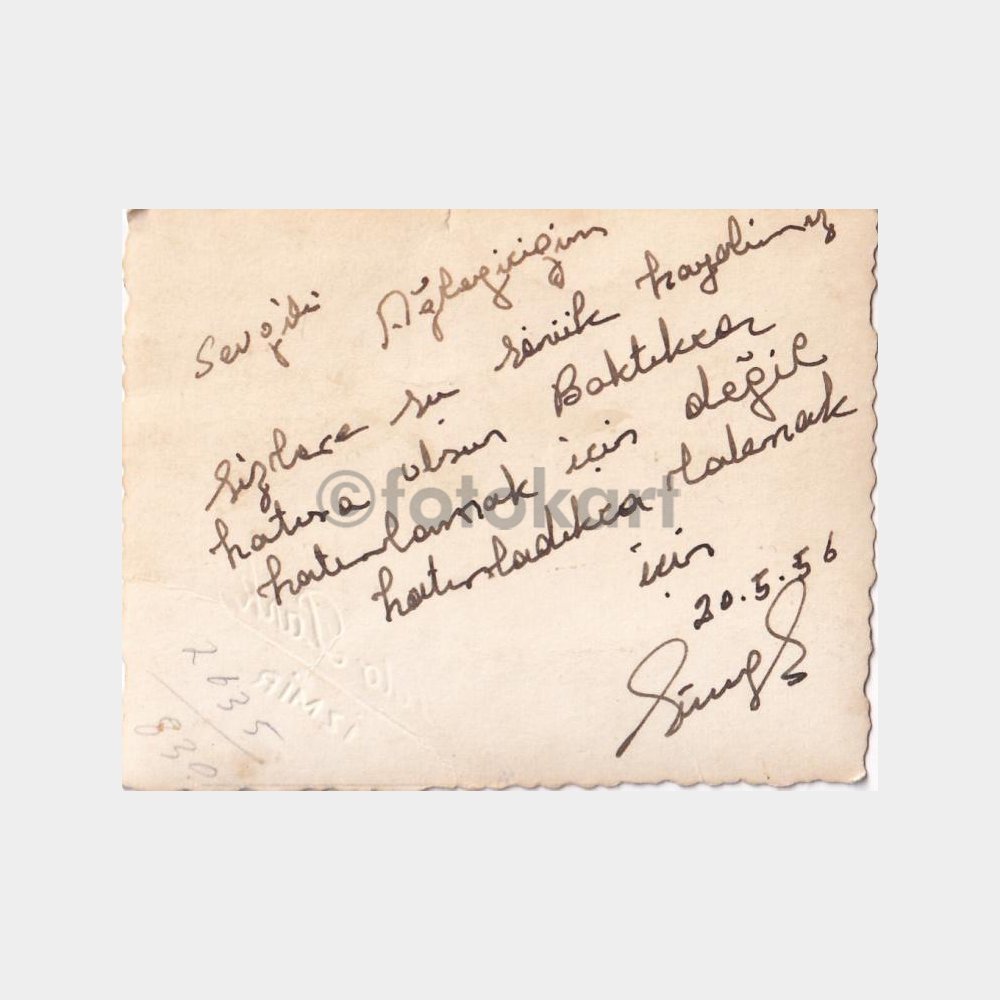 Sevgili Ağbeyiciğim
Sizlere şu sönük hayalimiz
hatıra olsun Baktıkça
hatırlamak için değil
hatırladıkca
için
20.5.56
©fotokart
Foto
İZMİR
7635
830